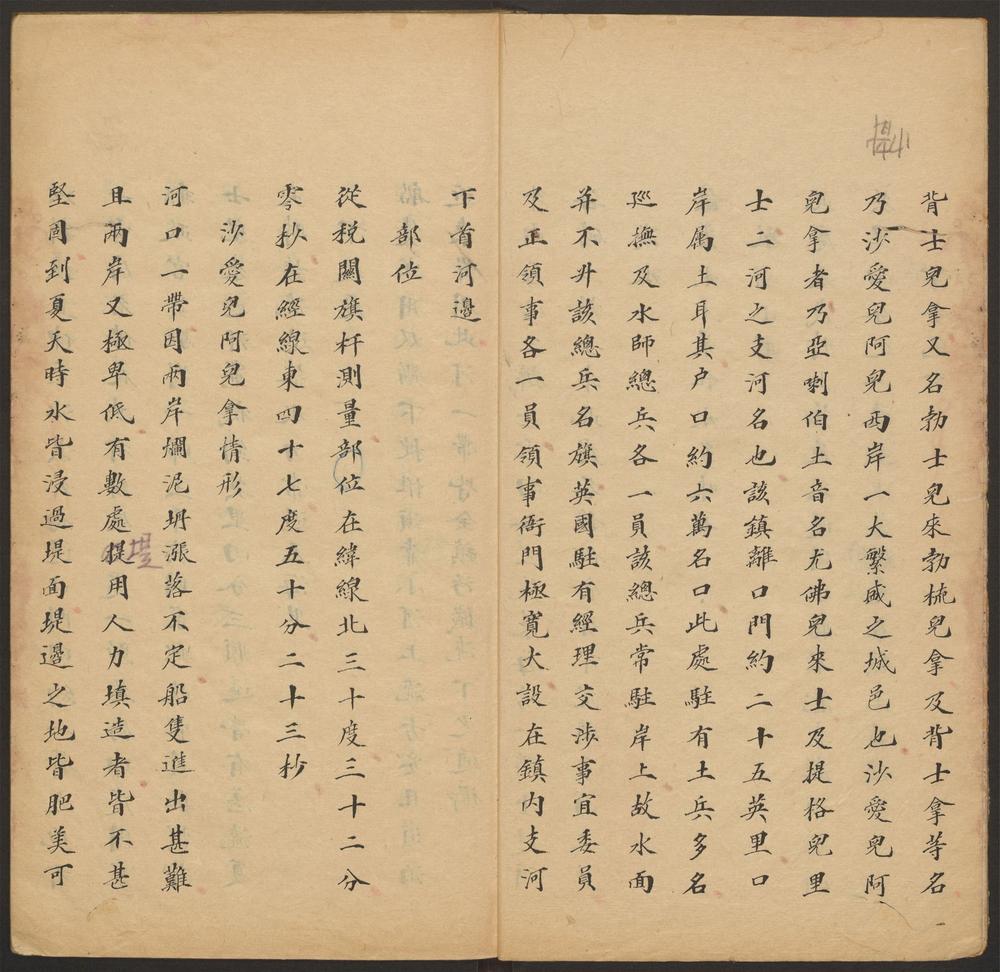 背士皃拿又名勃士皃來勃梳皃拿及背士拿等名
乃沙愛皃阿皃西岸一大繁盛之城邑也沙愛皃阿
皃拿者乃亞喇伯土音名尤佛皃來士及提格皃里
士二河之支河名也該鎮離口門約二十五英里口
岸属土耳其户口約六萬名口此處駐有土兵多名
廵撫及水師總兵各一員該總兵常駐岸上故水面
并不升該總兵名旗英國駐有經理交涉事宜委員
及正領事各一員領事衙門極寬大設在鎮内支河
下首河邊
部位
從税關旗杆測量部位在緯線北三十度三十二分
零抄在經線東四十七度五十分二十三秒
沙愛皃阿皃拿情形
河口一帶因兩岸爛泥坍漲落不定船隻進出甚難
且兩岸又極卑低有數處提用人力填造者皆不甚
堤
堅固到夏天時水皆浸過堤面堤邊之地皆肥美可